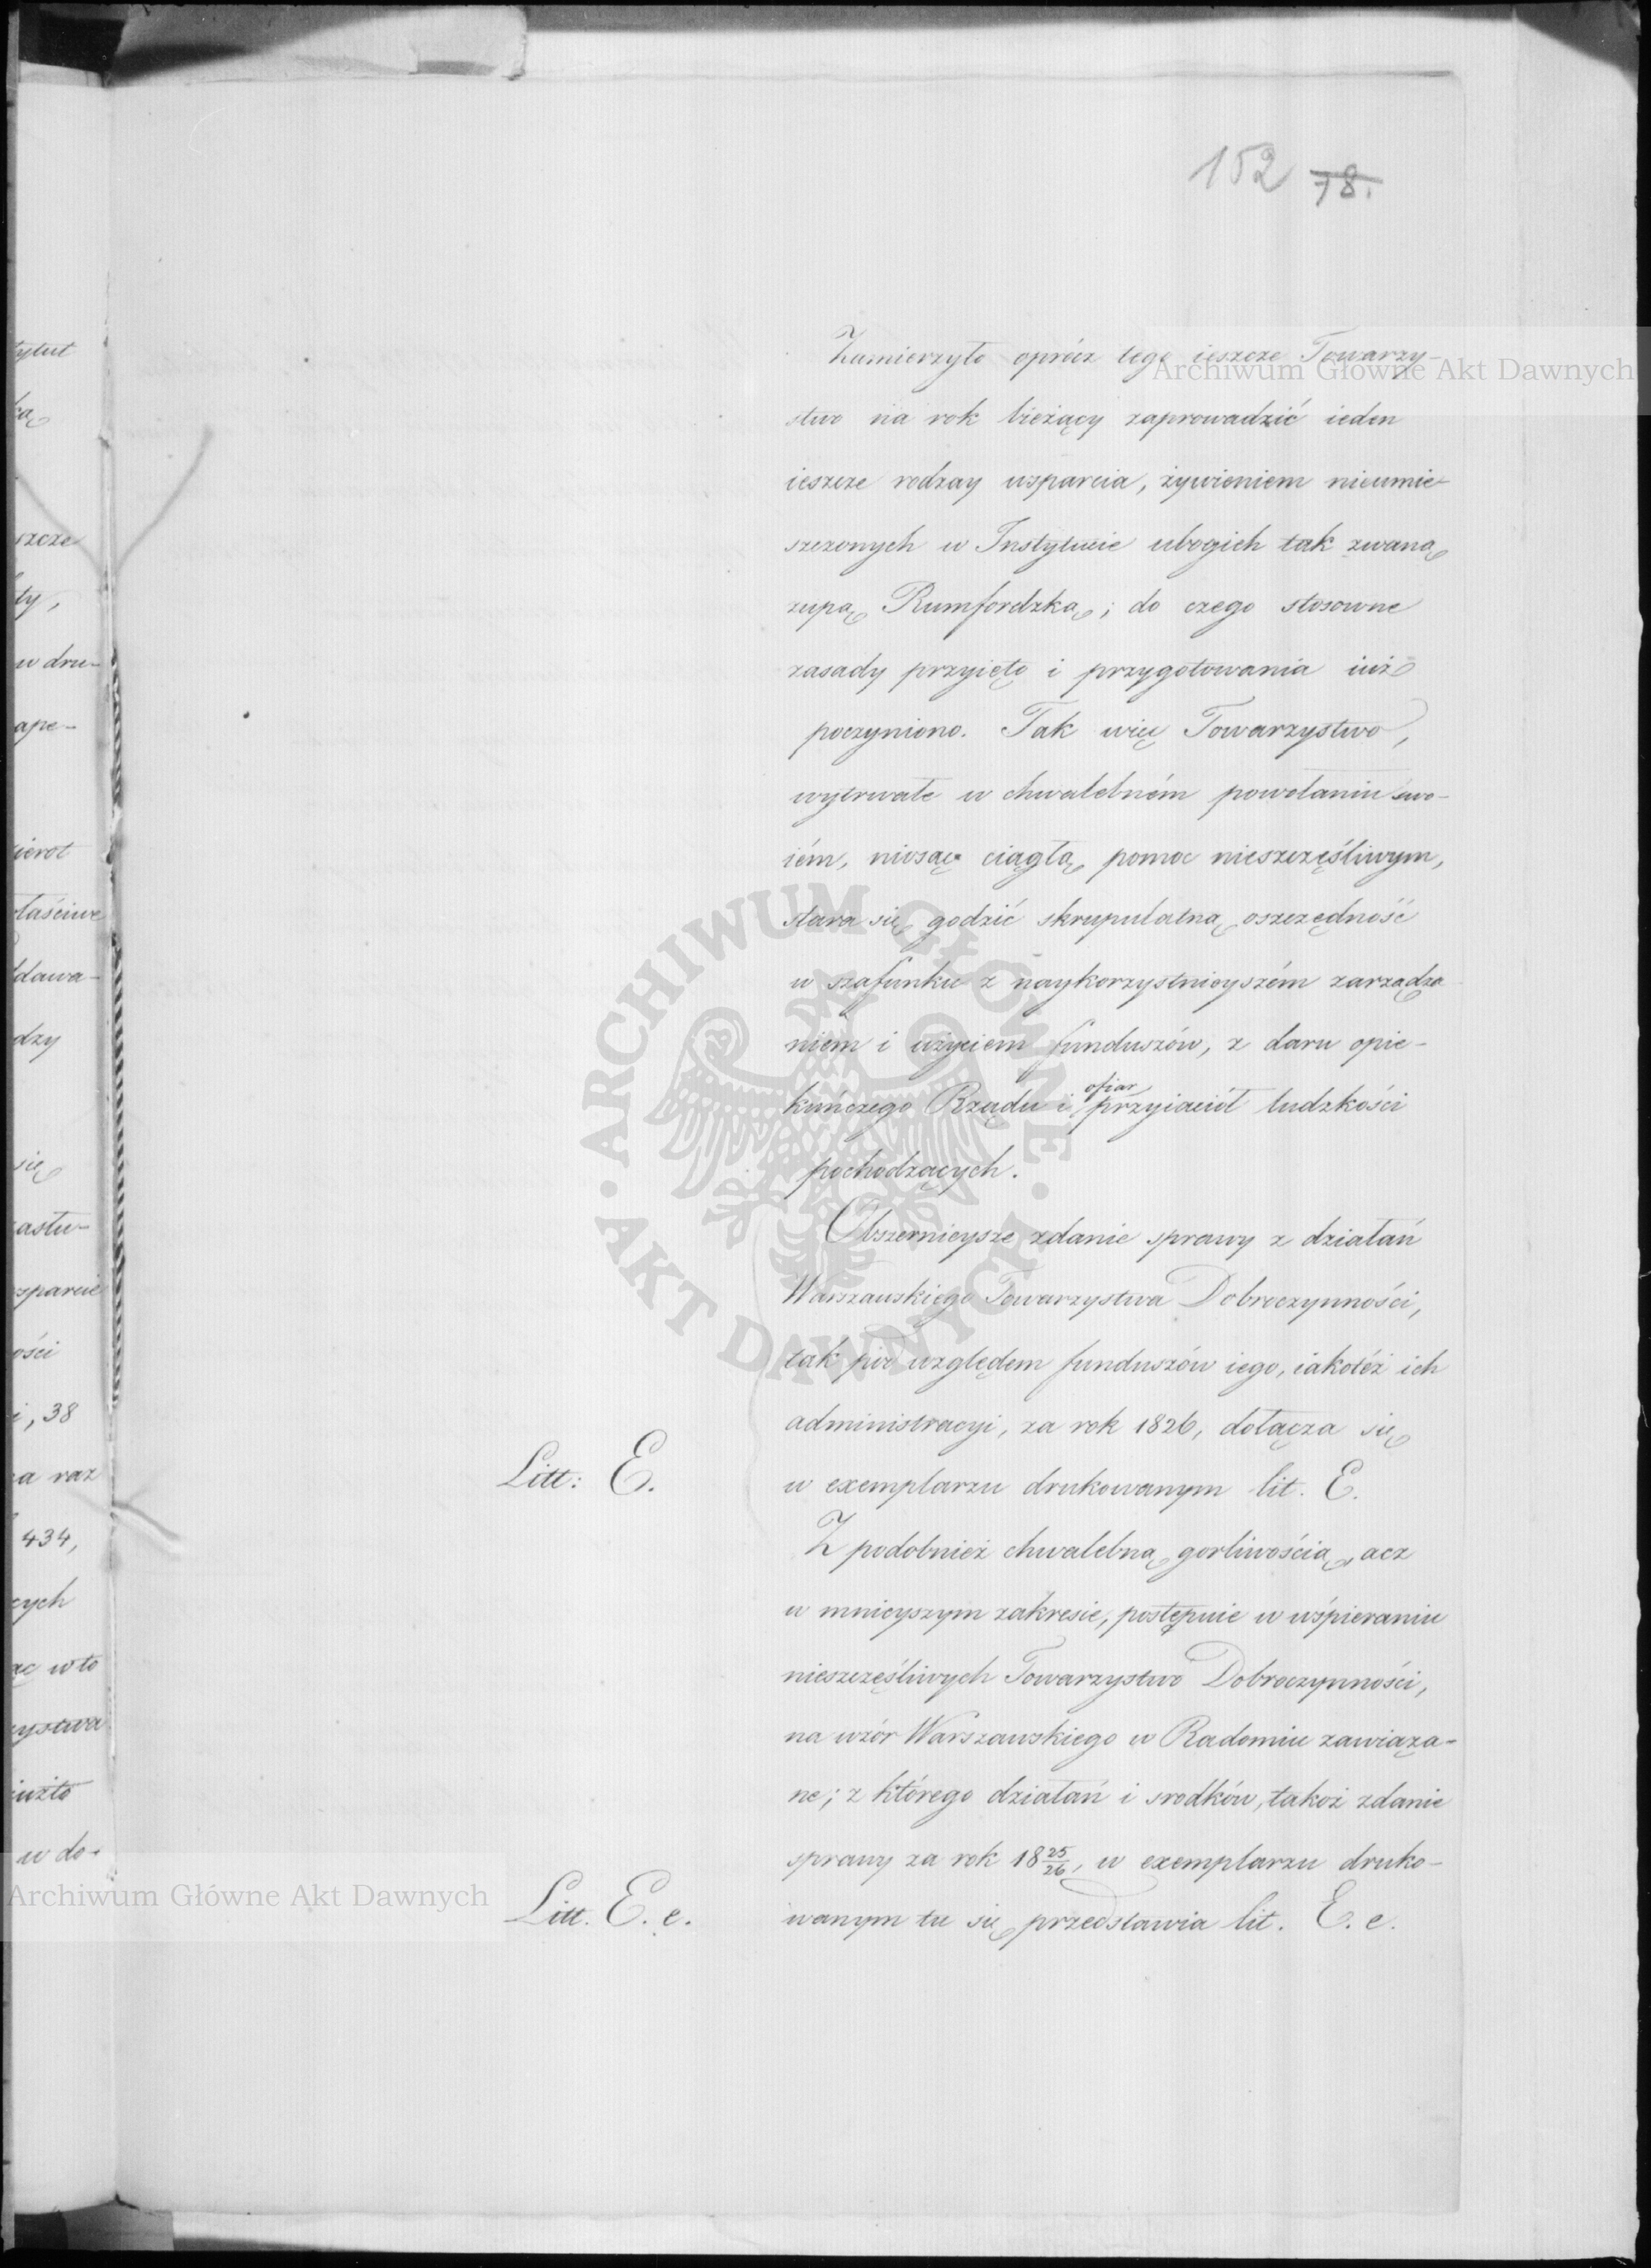 152 78.
Zamierzyło oprócz tego ieszcze Towarzy-
stwo na rok bieżący zaprowadzić ieden
ieszcze rodzay wsparcia, żywieniem nieumie-
szczonych w Instytucie ubogich tak zwaną
zupą Rumfordzką; do czego stosowne
zasady przyięto i przygotowania iuż
poczyniono. Tak więc Towarzystwo,
wytrwałe w chwalebném powołaniu swo-
iém, niosąc ciągłą pomoc nieszczęśliwym,
stara się godzić skrupulatną oszczędność
w szafunku z naykorzystnieyszém zarządza
niem i użyciem funduszów, z daru opie-
kuńczego Rządu i ofiar przyiaciół ludzkości
pochodzących.
Obszernieysze zdanie sprawy z działań
Warszawskiego Towarzystwa Dobroczynności,
tak pod względem funduszów iego, iakotéż ich
administracyi, za rok 1826, dołącza się
Litt: E.
w exemplarzu drukowanym lit. E.
Z podobnież chwalebną gorliwością, acz
w mnieyszym zakresie, postępuie w wspieraniu
nieszczęśliwych Towarzystwo Dobroczynności,
na wzór Warszawskiego w Radomiu zawiąza-
ne; z którego działań i srodków, takoż zdanie
sprawy za rok 18 25/26, w exemplarzu druko-
Litt. E. e.
wanym tu się przedstawia lit. E. e.
tytut
ką
szcze
ty,
w dru-
ape-
ierot
właściwe
dawa-
dzy
się
zastu-
wsparcie
ości
i, 38
a raz
434,
cych
ąc w to
zystwa
iużto
w do-
Archiwum Główne Akt Dawnych
Archiwum Główne Akt Dawnych
ARCHIWUM GŁÓWNE AKT DAWNYCH